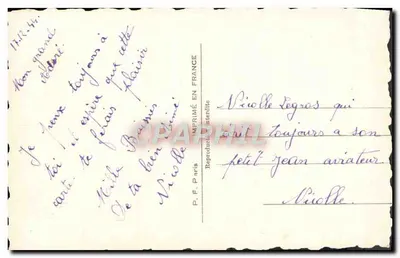 13-12-44.
Mon grand
Adoré
Je pense toujours à
toi et espère que cette
carte te ferais plaisir
Mille Baisers
De ta bien aimé
Nicolle
P. F. Paris
IMPRIMÉ EN FRANCE
Reproduction interdite
Nicolle Legros qui
toujours a son
petit Jean aviateur
Nicolle.